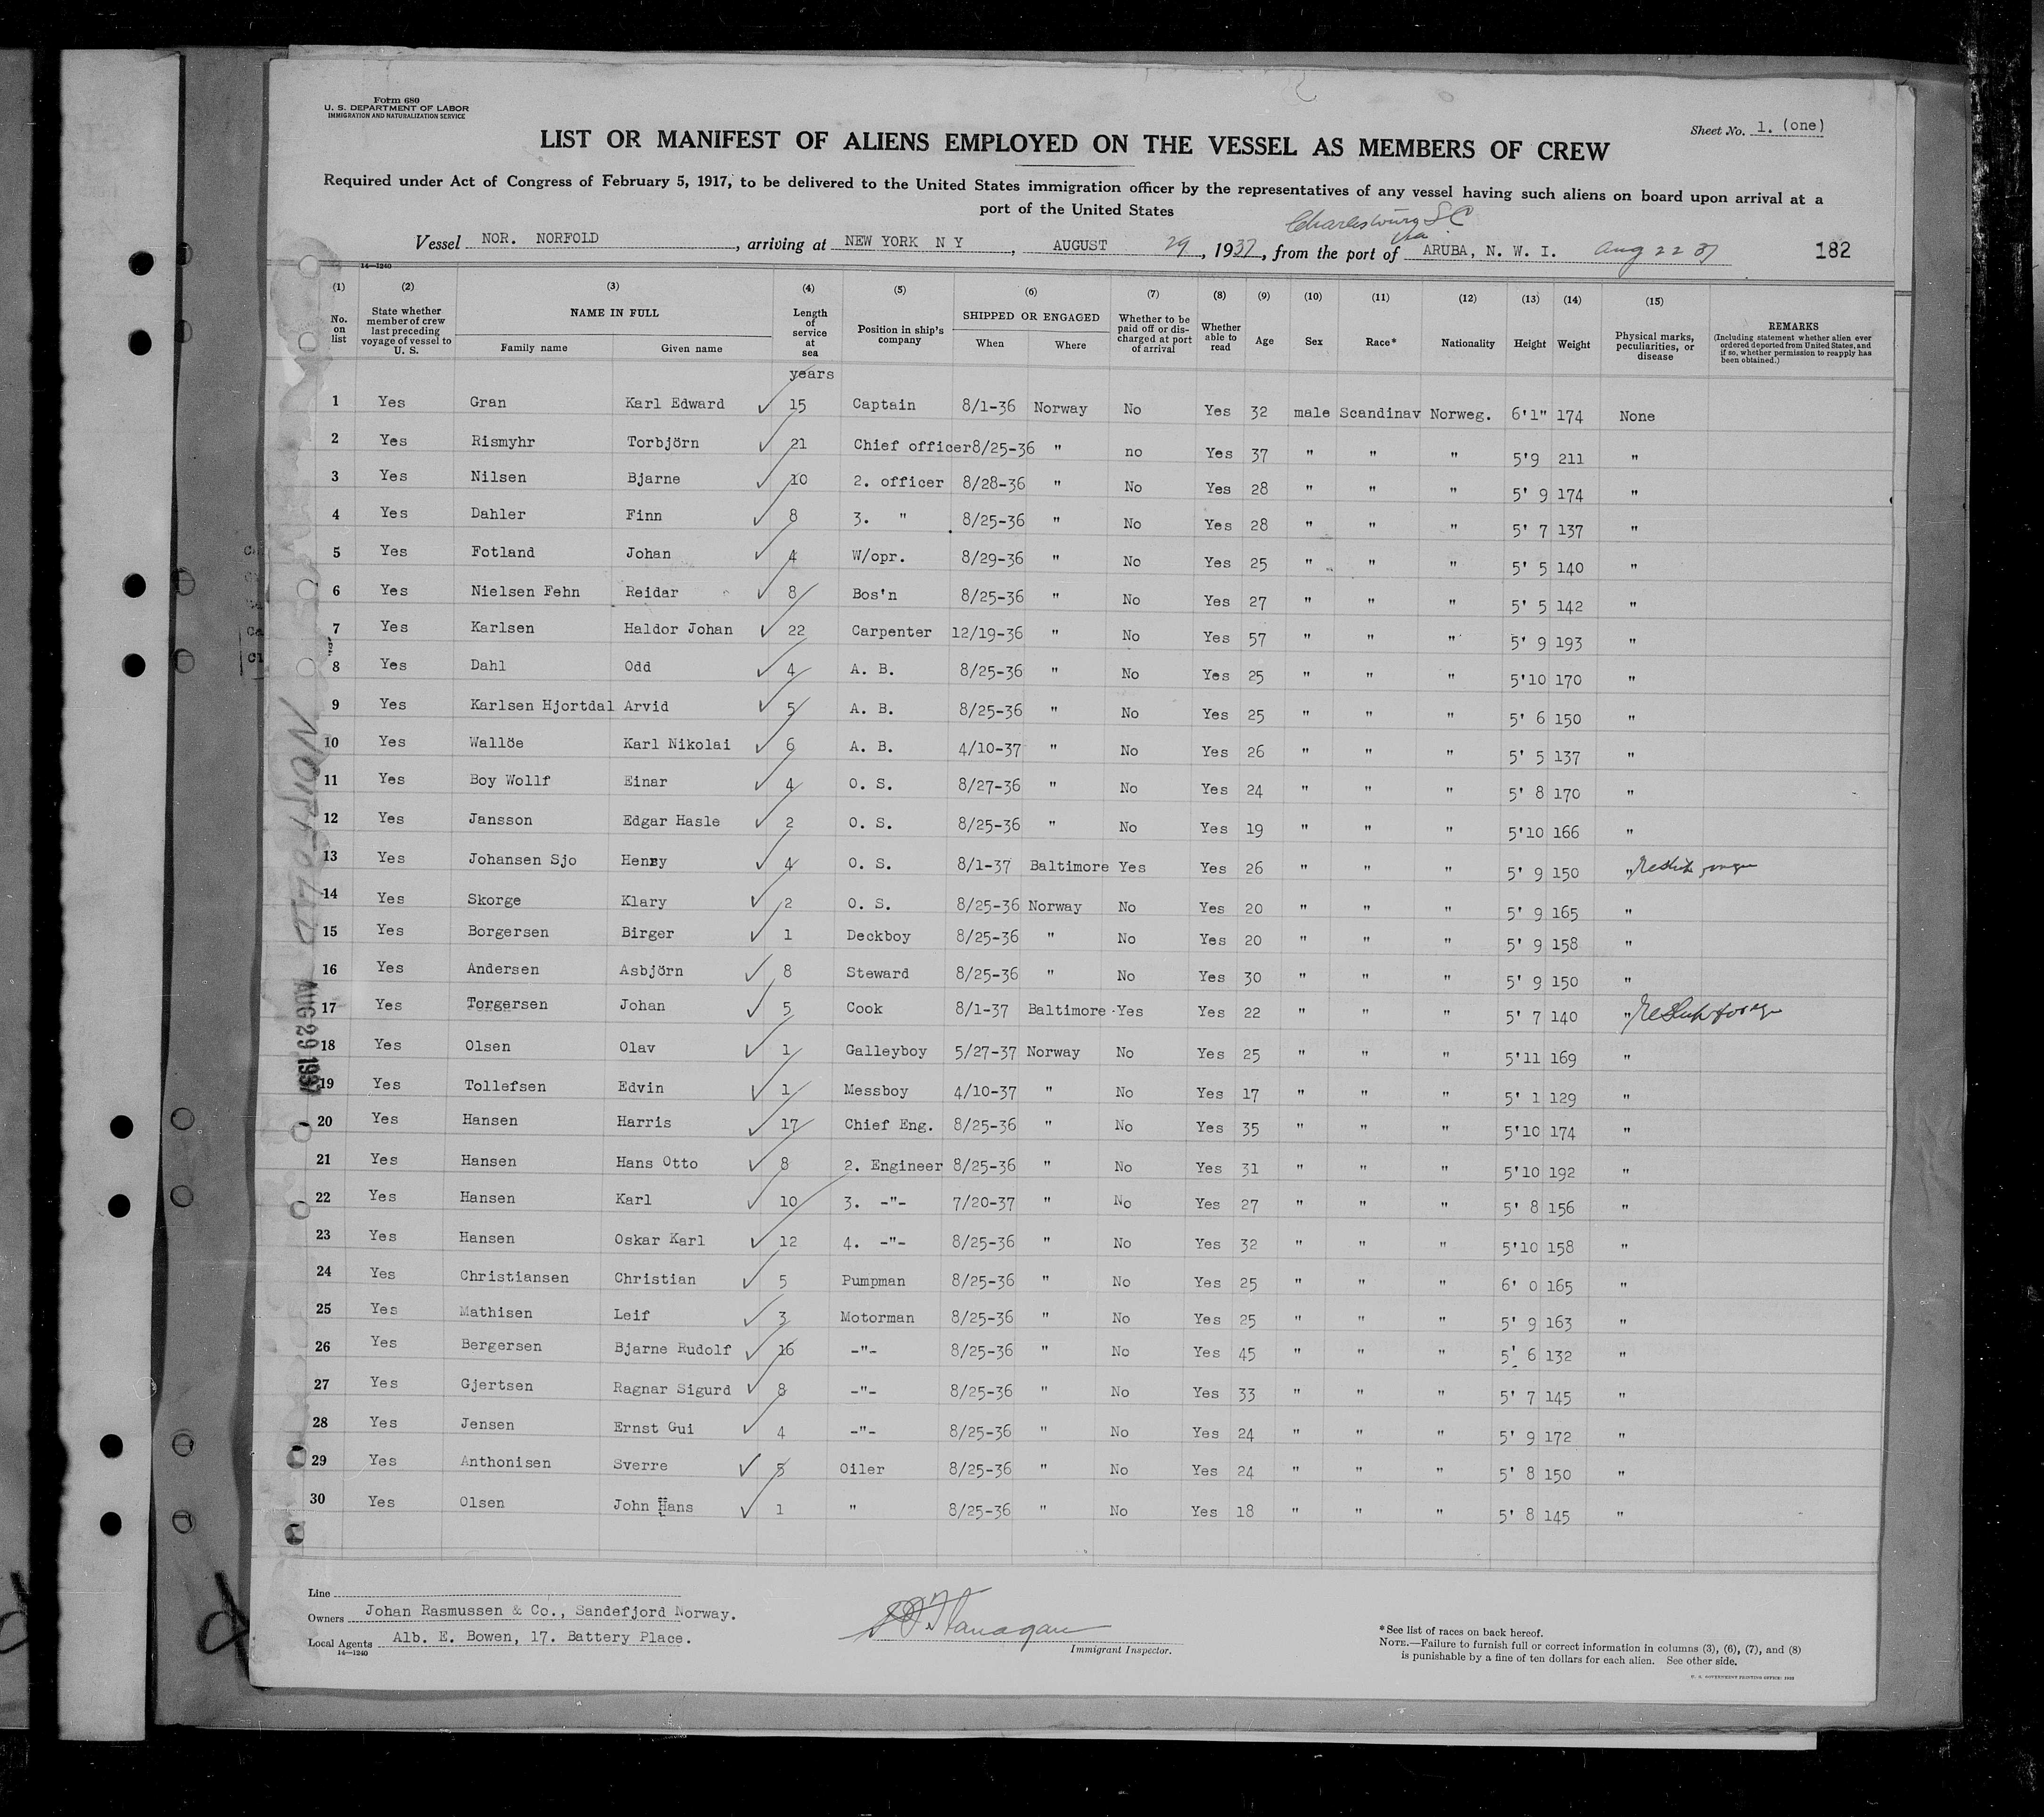 Form 680
U. S. DEPARTMENT OF LABOR
IMMIGRATION AND NATURALIZATION SERVICE
Sheet No. 1. (one)
LIST OR MANIFEST OF ALIENS EMPLOYED ON THE VESSEL AS MEMBERS OF CREW
Required under Act of Congress of February 5, 1917, to be delivered to the United States immigration officer by the representatives of any vessel having such aliens on board upon arrival at a
port of the United States
S C
via
Vessel NOR. NORFOLD, arriving at NEW YORK N Y, AUGUST 29, 1937, from the port of ARUBA, N. W. I. Aug 22 37 182
14—1240
(1) (2) (3) (4) (5) (6) (7) (8) (9) (10) (11) (12) (13) (14) (15)
No. on list State whether member of crew last preceding voyage of vessel to U. S. NAME IN FULL Family name Given name Length of service at sea Position in ship's company SHIPPED OR ENGAGED When Where Whether to be paid off or discharged at port of arrival Whether able to read Age Sex Race* Nationality Height Weight Physical marks, peculiarities, or disease REMARKS (Including statement whether alien ever ordered deported from United States, and if so, whether permission to reapply has been obtained.)
years
1 Yes Gran Karl Edward ✓ 15 Captain 8/1-36 Norway No Yes 32 male Scandinav Norweg. 6'1" 174 None
2 Yes Rismyhr Torbjörn ✓ 21 Chief officer 8/25-36 " no Yes 37 " " " 5'9 211 "
3 Yes Nilsen Bjarne ✓ 10 2. officer 8/28-36 " No Yes 28 " " " 5' 9 174 "
4 Yes Dahler Finn ✓ 8 3. " 8/25-36 " No Yes 28 " " " 5' 7 137 "
5 Yes Fotland Johan ✓ 4 W/opr. 8/29-36 " No Yes 25 " " " 5' 5 140 "
6 Yes Nielsen Fehn Reidar ✓ 8 Bos'n 8/25-36 " No Yes 27 " " " 5' 5 142 "
7 Yes Karlsen Haldor Johan ✓ 22 Carpenter 12/19-36 " No Yes 57 " " " 5' 9 193 "
8 Yes Dahl Odd ✓ 4 A. B. 8/25-36 " No Yes 25 " " " 5'10 170 "
9 Yes Karlsen Hjortdal Arvid ✓ 5 A. B. 8/25-36 " No Yes 25 " " " 5' 6 150 "
10 Yes Wallöe Karl Nikolai ✓ 6 A. B. 4/10-37 " No Yes 26 " " " 5' 5 137 "
11 Yes Boy Wollf Einar ✓ 4 O. S. 8/27-36 " No Yes 24 " " " 5' 8 170 "
12 Yes Jansson Edgar Hasle ✓ 2 O. S. 8/25-36 " No Yes 19 " " " 5'10 166 "
13 Yes Johansen Sjo Henry ✓ 4 O. S. 8/1-37 Baltimore Yes Yes 26 " " " 5' 9 150 "
14 Yes Skorge Klary ✓ 2 O. S. 8/25-36 Norway No Yes 20 " " " 5' 9 165 "
15 Yes Borgersen Birger ✓ 1 Deckboy 8/25-36 " No Yes 20 " " " 5' 9 158 "
16 Yes Andersen Asbjörn ✓ 8 Steward 8/25-36 " No Yes 30 " " " 5' 9 150 "
17 Yes Torgersen Johan ✓ 5 Cook 8/1-37 Baltimore Yes Yes 22 " " " 5' 7 140 "
18 Yes Olsen Olav ✓ 1 Galleyboy 5/27-37 Norway No Yes 25 " " " 5'11 169 "
19 Yes Tollefsen Edvin ✓ 1 Messboy 4/10-37 " No Yes 17 " " " 5' 1 129 "
20 Yes Hansen Harris ✓ 17 Chief Eng. 8/25-36 " No Yes 35 " " " 5'10 174 "
21 Yes Hansen Hans Otto ✓ 8 2. Engineer 8/25-36 " No Yes 31 " " " 5'10 192 "
22 Yes Hansen Karl ✓ 10 3. -"- 7/20-37 " No Yes 27 " " " 5' 8 156 "
23 Yes Hansen Oskar Karl ✓ 12 4. -"- 8/25-36 " No Yes 32 " " " 5'10 158 "
24 Yes Christiansen Christian ✓ 5 Pumpman 8/25-36 " No Yes 25 " " " 6' 0 165 "
25 Yes Mathisen Leif ✓ 3 Motorman 8/25-36 " No Yes 25 " " " 5' 9 163 "
26 Yes Bergersen Bjarne Rudolf ✓ 16 -"- 8/25-36 " No Yes 45 " " " 5' 6 132 "
27 Yes Gjertsen Ragnar Sigurd ✓ 8 -"- 8/25-36 " No Yes 33 " " " 5' 7 145 "
28 Yes Jensen Ernst Gui ✓ 4 -"- 8/25-36 " No Yes 24 " " " 5' 9 172 "
29 Yes Anthonisen Sverre ✓ 5 Oiler 8/25-36 " No Yes 24 " " " 5' 8 150 "
30 Yes Olsen John Hans ✓ 1 " 8/25-36 " No Yes 18 " " " 5' 8 145 "
NORFOLD AUG 29 1937
Line
Owners Johan Rasmussen & Co., Sandefjord Norway.
Local Agents Alb. E. Bowen, 17. Battery Place.
14—1240
Flanagan
Immigrant Inspector.
*See list of races on back hereof.
NOTE.—Failure to furnish full or correct information in columns (3), (6), (7), and (8)
is punishable by a fine of ten dollars for each alien. See other side.